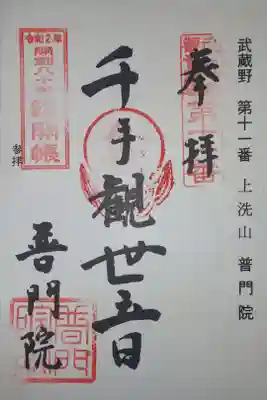 武蔵野 第十一番 上洗山 普門院
奉拝
千手観世音
普門院
令和2年
開創八十年
総開帳
参拝